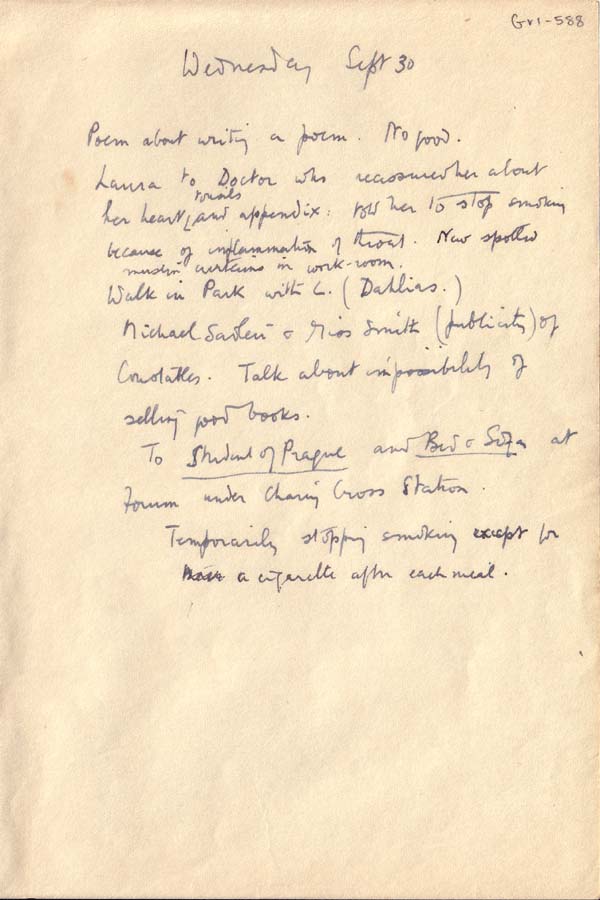 Gv1-588
Wednesday Sept 30
Poem about writing a poem. No good.
Laura to Doctor who reassured her about
tonsils
her heart, and appendix: told her to stop smoking
because of inflammation of throat. New spotted
muslin curtains in work-room.
Walk in Park with L. (Dahlias.)
Michael Sadleir & Miss Smith (publicity) of
Constables. Talk about impossibility of
selling good books.
To Student of Prague and Bed & Sofa at
Forum under Charing Cross Station.
Temporarily stopping smoking except for
a cigarette after each meal.